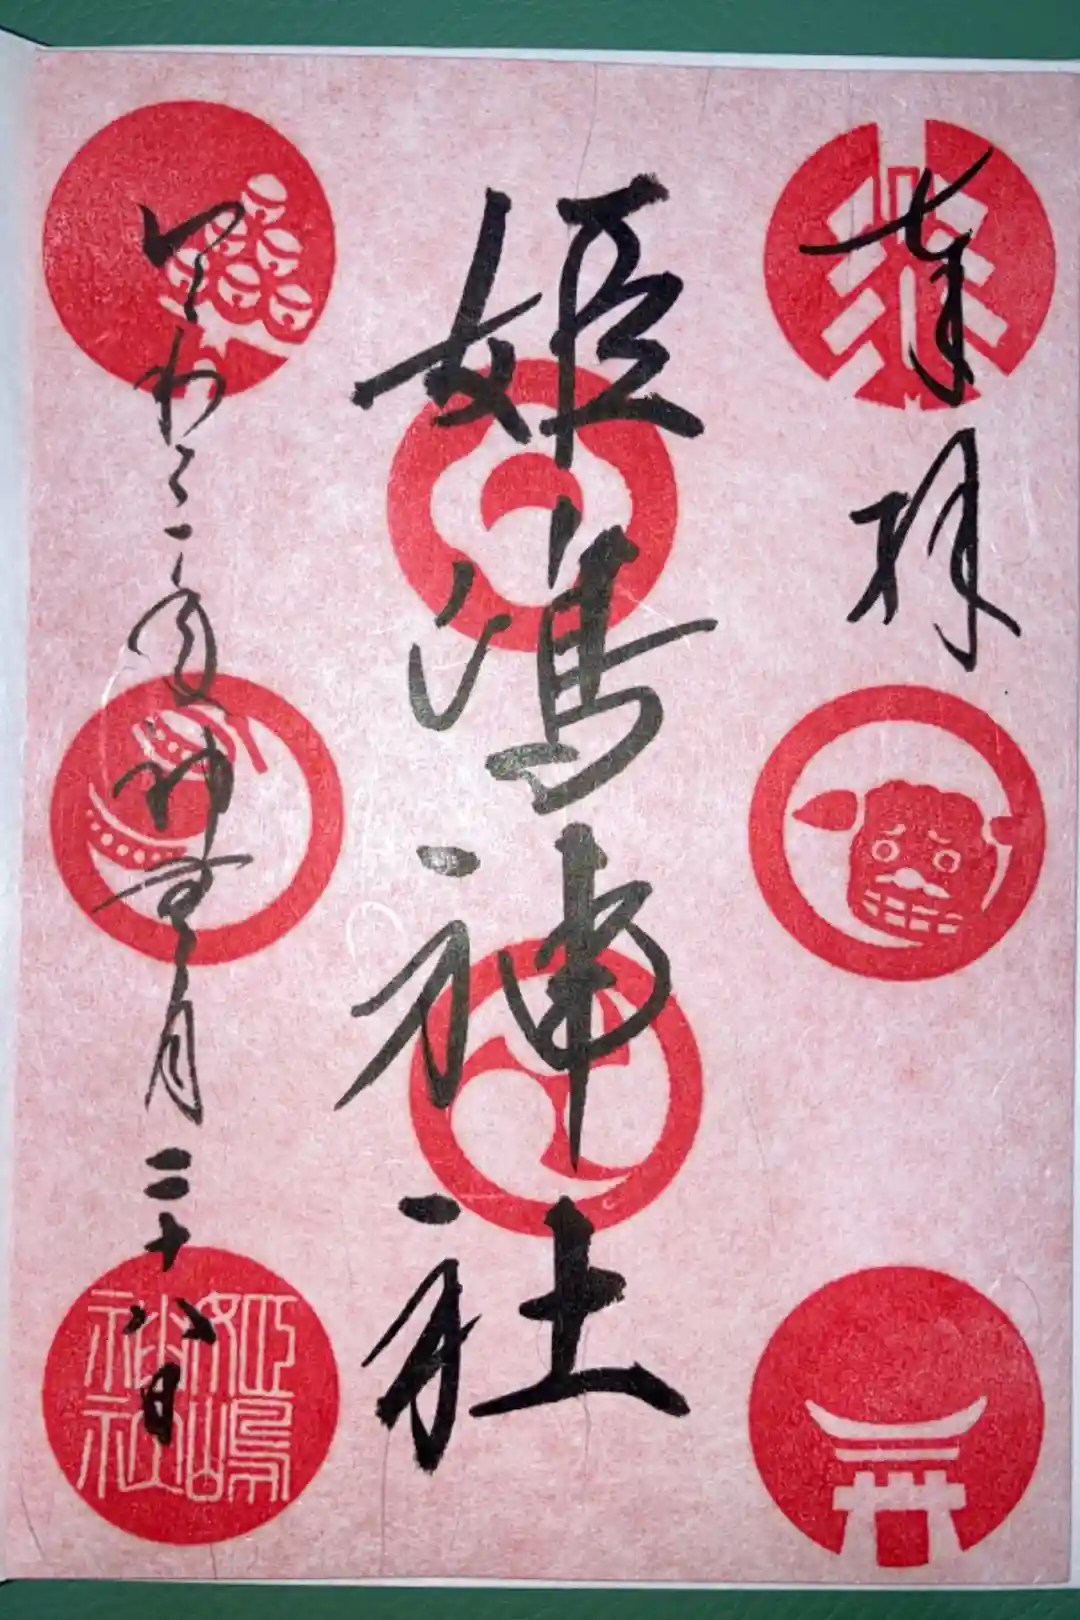 奉拝
姫嶋神社
令和三年神無月二十八日
姫嶋
神社